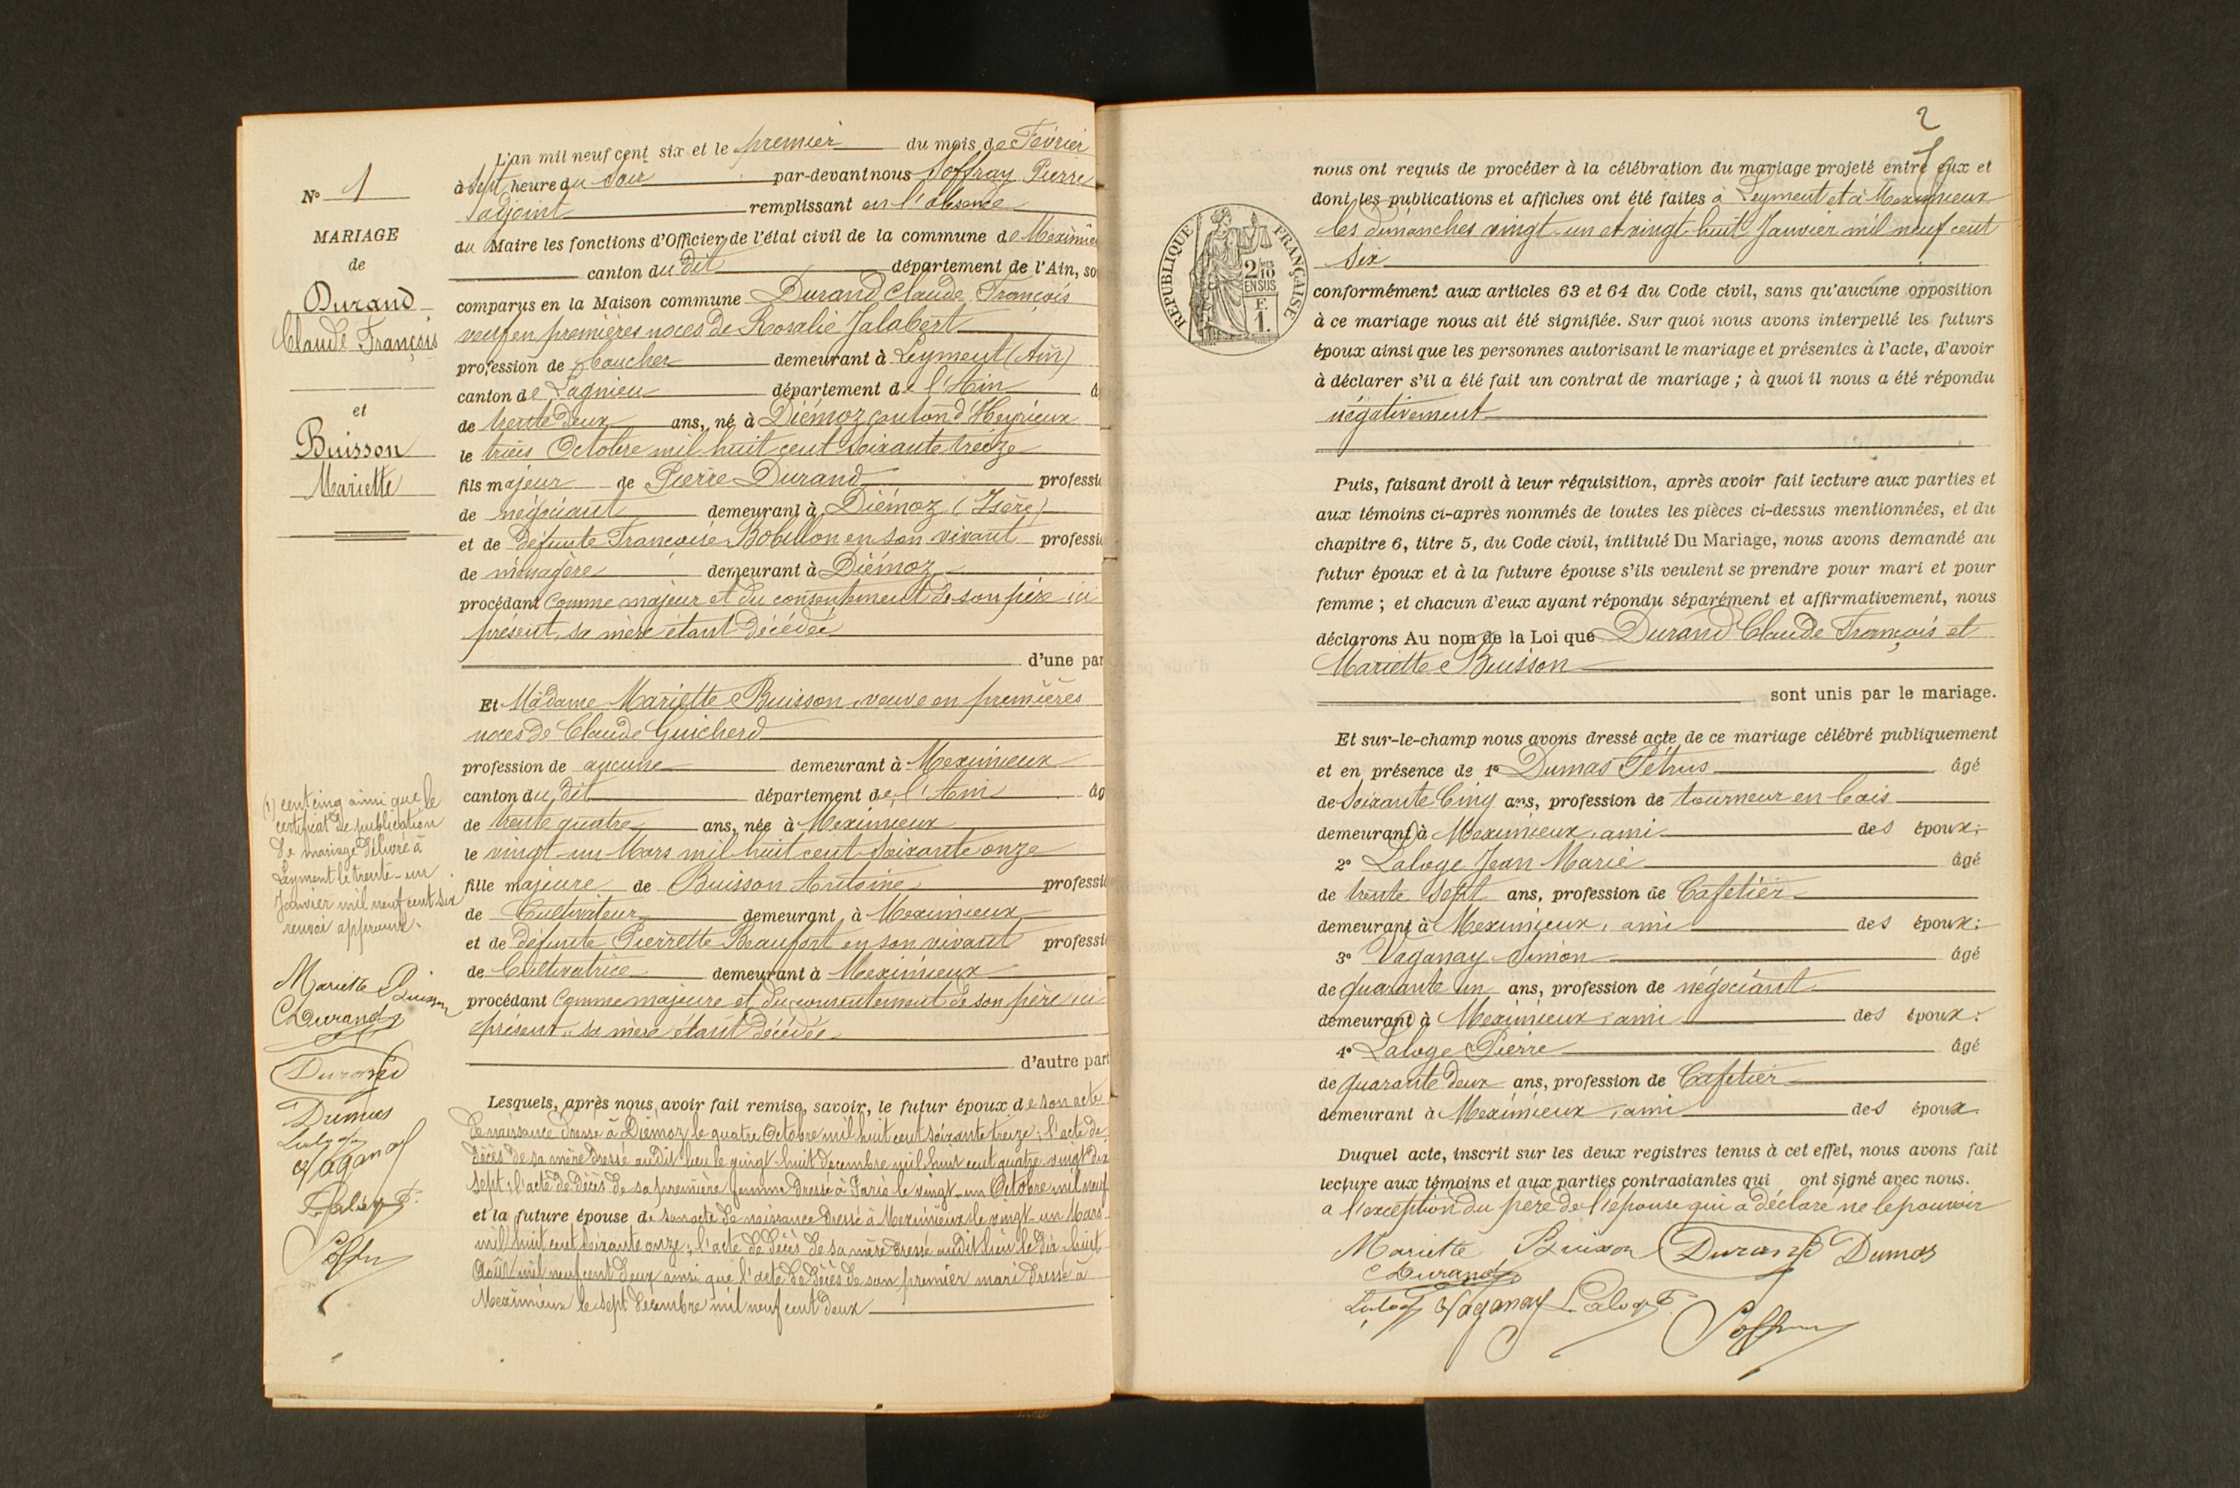 N° 1
MARIAGE
de
Durand
Claude François
et
Buisson
Mariette
(1) cent cinq ainsi que le
certificat de publication
de mariage délivré à
Leyment le trente-un
Janvier mil neuf cent six
renvoi approuvé.
Mariette Buisson
C Durand
Durand
Dumas
Vaganay
L'an mil neuf cent six et le premier du mois de Février
à sept heure du soir par-devant nous Joffray Pierre
adjoint remplissant en l'absence
du Maire les fonctions d'Officier de l'état civil de la commune de Meximie
canton du dit département de l'Ain, so
comparus en la Maison commune Durand Claude François
veuf en premières noces de Rosalie Jalabert
profession de Coucher demeurant à Leyment (Ain)
canton de Lagnieu département de l'Ain â
de trente deux ans, né à Diémoz canton d'Heyrieux
le trois Octobre mil huit cent soixante treize
fils majeur de Pierre Durand professi
de négociant demeurant à Diémoz (Isère)
et de défunte Françoise Bobillon en son vivant professi
de ménagère demeurant à Diémoz
procédant comme majeur et du consentement de son père ici
présent, sa mère étant décédée
d'une par
Et Madame Mariette Buisson, veuve en premières
noces de Claude Guicherd
profession de aucune demeurant à Meximieux
canton du dit département de l'Ain âg
de trente quatre ans, née à Meximieux
le vingt-un Mars mil huit cent soixante onze
fille majeure de Buisson Antoine professi
de Cultivateur demeurant à Meximieux
et de défunte Pierrette Beaufort en son vivant professi
de Cultivatrice demeurant à Meximieux
procédant comme majeure et du consentement de son père ici
présent, sa mère étant décédée
d'autre part
Lesquels, après nous avoir fait remise, savoir, le futur époux de son acte
de naissance dressé à Diémoz le quatre Octobre mil huit cent soixante treize; l'acte de
décès de sa mère dressé audit lieu le vingt-huit décembre mil huit cent quatre-vingt dix
sept; l'acte de décès de sa première femme dressé à Paris le vingt-un Octobre mil neuf
et la future épouse de son acte de naissance dressé à Meximieux le vingt-un Mars
mil huit cent soixante onze; l'acte de décès de sa mère dressé audit lieu le dix-huit
Août mil neuf cent deux ainsi que l'acte de décès de son premier mari dressé à
Meximieux le sept décembre mil neuf cent deux
2
RÉPUBLIQUE FRANÇAISE
2/10
EN SUS
F.
1.
nous ont requis de procéder à la célébration du mariage projeté entre eux et
dont les publications et affiches ont été faites à Leyment et à Meximieux
les dimanches vingt-un et vingt-huit Janvier mil neuf cent
six
conformément aux articles 63 et 64 du Code civil, sans qu'aucune opposition
à ce mariage nous ait été signifiée. Sur quoi nous avons interpellé les futurs
époux ainsi que les personnes autorisant le mariage et présentes à l'acte, d'avoir
à déclarer s'il a été fait un contrat de mariage; à quoi il nous a été répondu
négativement
Puis, faisant droit à leur réquisition, après avoir fait lecture aux parties et
aux témoins ci-après nommés de toutes les pièces ci-dessus mentionnées, et du
chapitre 6, titre 5, du Code civil, intitulé Du Mariage, nous avons demandé au
futur époux et à la future épouse s'ils veulent se prendre pour mari et pour
femme; et chacun d'eux ayant répondu séparément et affirmativement, nous
déclarons Au nom de la Loi que Durand Claude François et
Mariette Buisson
sont unis par le mariage.
Et sur-le-champ nous avons dressé acte de ce mariage célébré publiquement
et en présence de 1° Dumas Pétrus âgé
de soixante cinq ans, profession de tourneur en bois
demeurant à Meximieux, ami des époux;
2° Laloge Jean Marie âgé
de trente sept ans, profession de Cafetier
demeurant à Meximieux, ami des époux;
3° Vaganay Simon âgé
de quarante un ans, profession de négociant
demeurant à Meximieux, ami des époux;
4° Laloge Pierre âgé
de quarante deux ans, profession de Cafetier
demeurant à Meximieux, ami des époux
Duquel acte, inscrit sur les deux registres tenus à cet effet, nous avons fait
lecture aux témoins et aux parties contractantes qui ont signé avec nous.
a l'exception du père de l'épouse qui a déclaré ne le pouvoir
Mariette Buisson Durand Dumas
C Durand
Laloge Vaganay Laloge P.